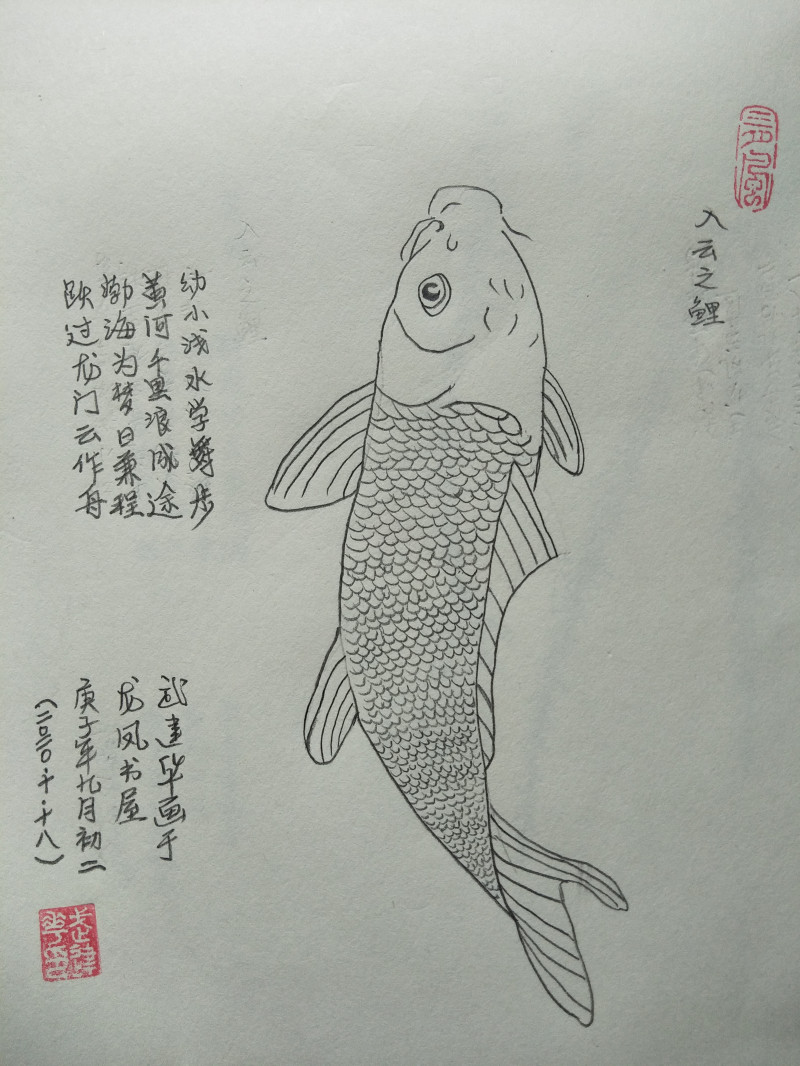 入云之鲤
幼小浅水学舞步
黄河千里浪成途
渤海为梦日兼程
跃过龙门云作舟
武建华画于
龙凤书屋
庚子年九月初二
(二〇二〇.十.十八)